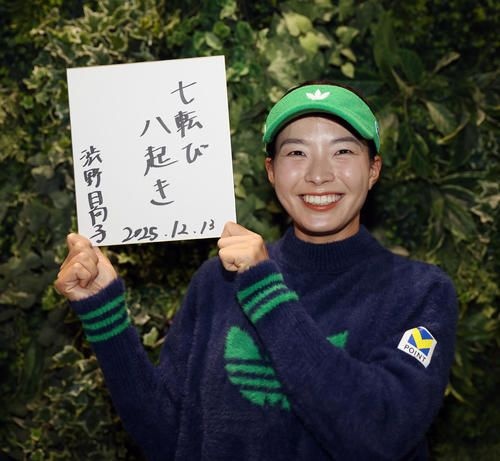 七転び
八起き
渋野日向子
2025.12.13
M
POINT